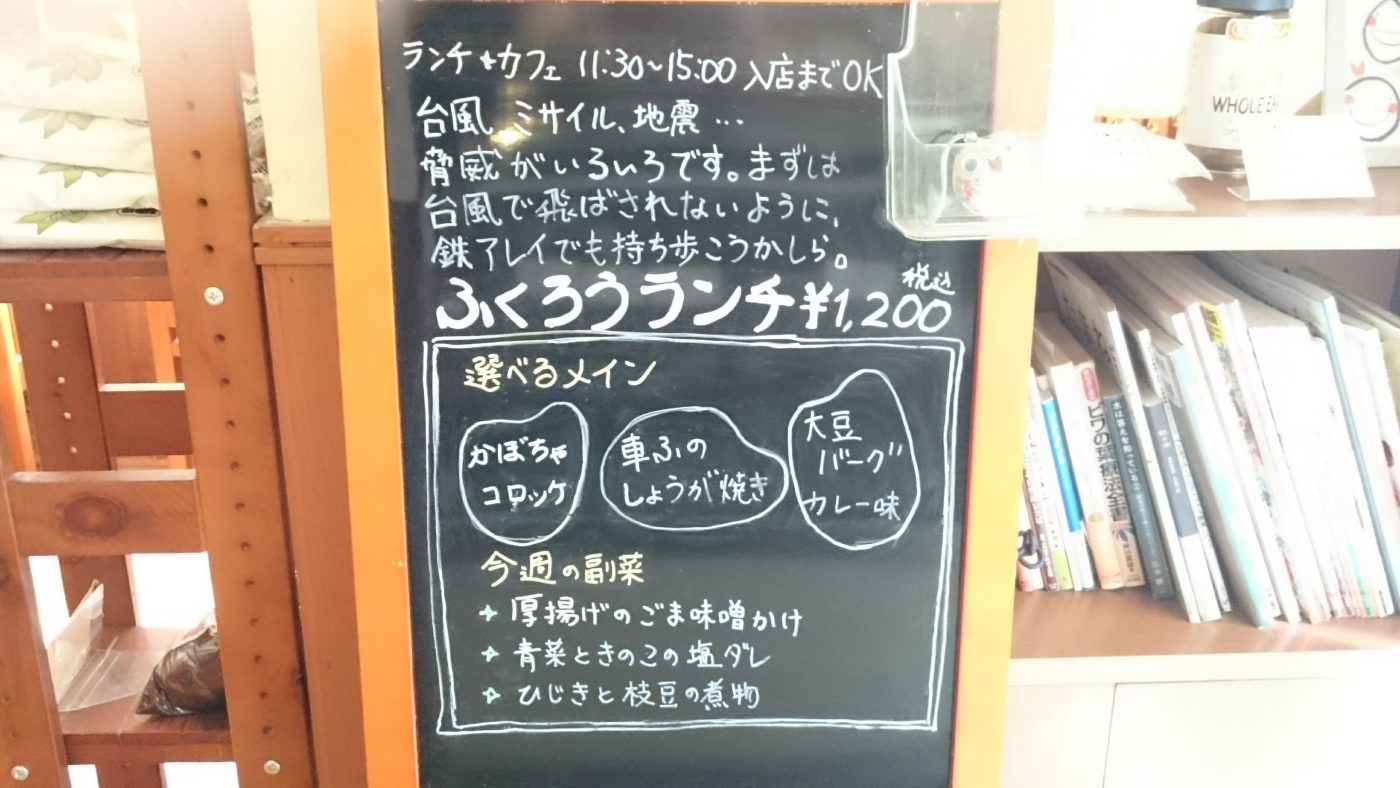 ランチ+カフェ 11:30~15:00 入店までOK
台風、ミサイル、地震…
脅威がいろいろです。まずは
台風で飛ばされないように、
鉄アレイでも持ち歩こうかしら。
ふくろうランチ¥1,200 税込
選べるメイン
かぼちゃ
コロッケ
車ふの
しょうが焼き
大豆
バーグ
カレー味
今週の副菜
厚揚げのごま味噌かけ
青菜ときのこの塩ダレ
ひじきと枝豆の煮物
WHOLE
ビワの葉療法全書
水は答えを知っている